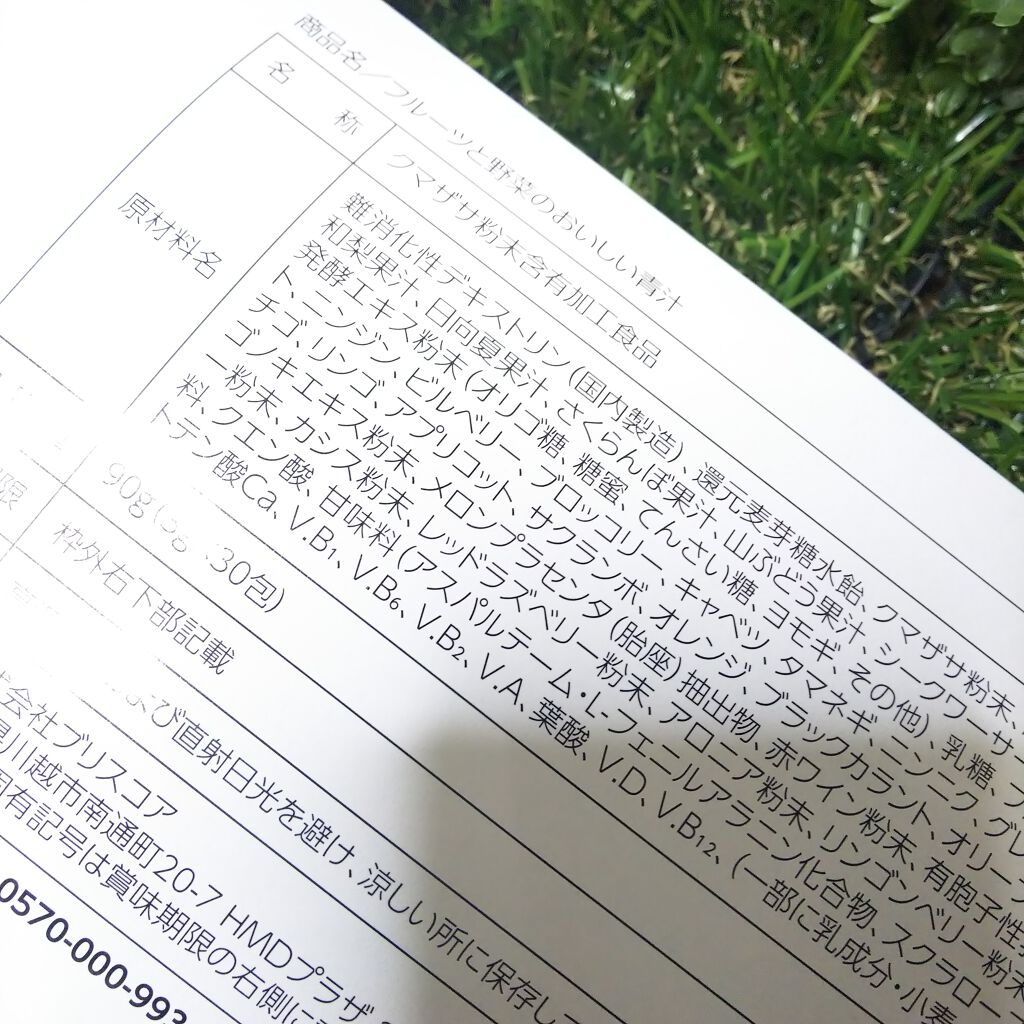 商品名／フルーツと野菜のおいしい青汁
名 称
クマザサ粉末含有加工食品
原材料名
難消化性デキストリン(国内製造)、還元麦芽糖水飴、クマザサ粉末、
和梨果汁、日向夏果汁、さくらんぼ果汁、山ぶどう果汁、シークワーサ
発酵エキス粉末(オリゴ糖、糖蜜、てんさい糖、ヨモギ、その他)、乳糖、
ト、ニンジン、ビルベリー、ブロッコリー、キャベツ、タマネギ、ニンニク、グレ
チゴ、リンゴ、アプリコット、サクランボ、オレンジ、ブラックカラント、オリー
ゴノキエキス粉末、メロンプラセンタ(胎座)抽出物、赤ワイン粉末、有胞子性
ー粉末、カシス粉末、レッドラズベリー粉末、アロニア粉末、リンゴンベリー粉末
料、クエン酸、甘味料(アスパルテーム・L-フェニルアラニン化合物、スクラロー
トテン酸Ca、V.B1、V.B6、V.B2、V.A、葉酸、V.D、V.B12、(一部に乳成分・小麦
90g(3g 、30包)
限
枠外右下部記載
よび直射日光を避け、涼しい所に保存し
会社ブリスコア
川越市南通町20-7 HMDプラザ
固有記号は賞味期限の右側に
0570-000-993